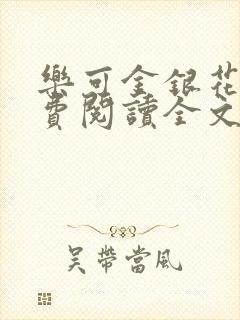 樂可金銀花
費閱讀全文
吳帶當風